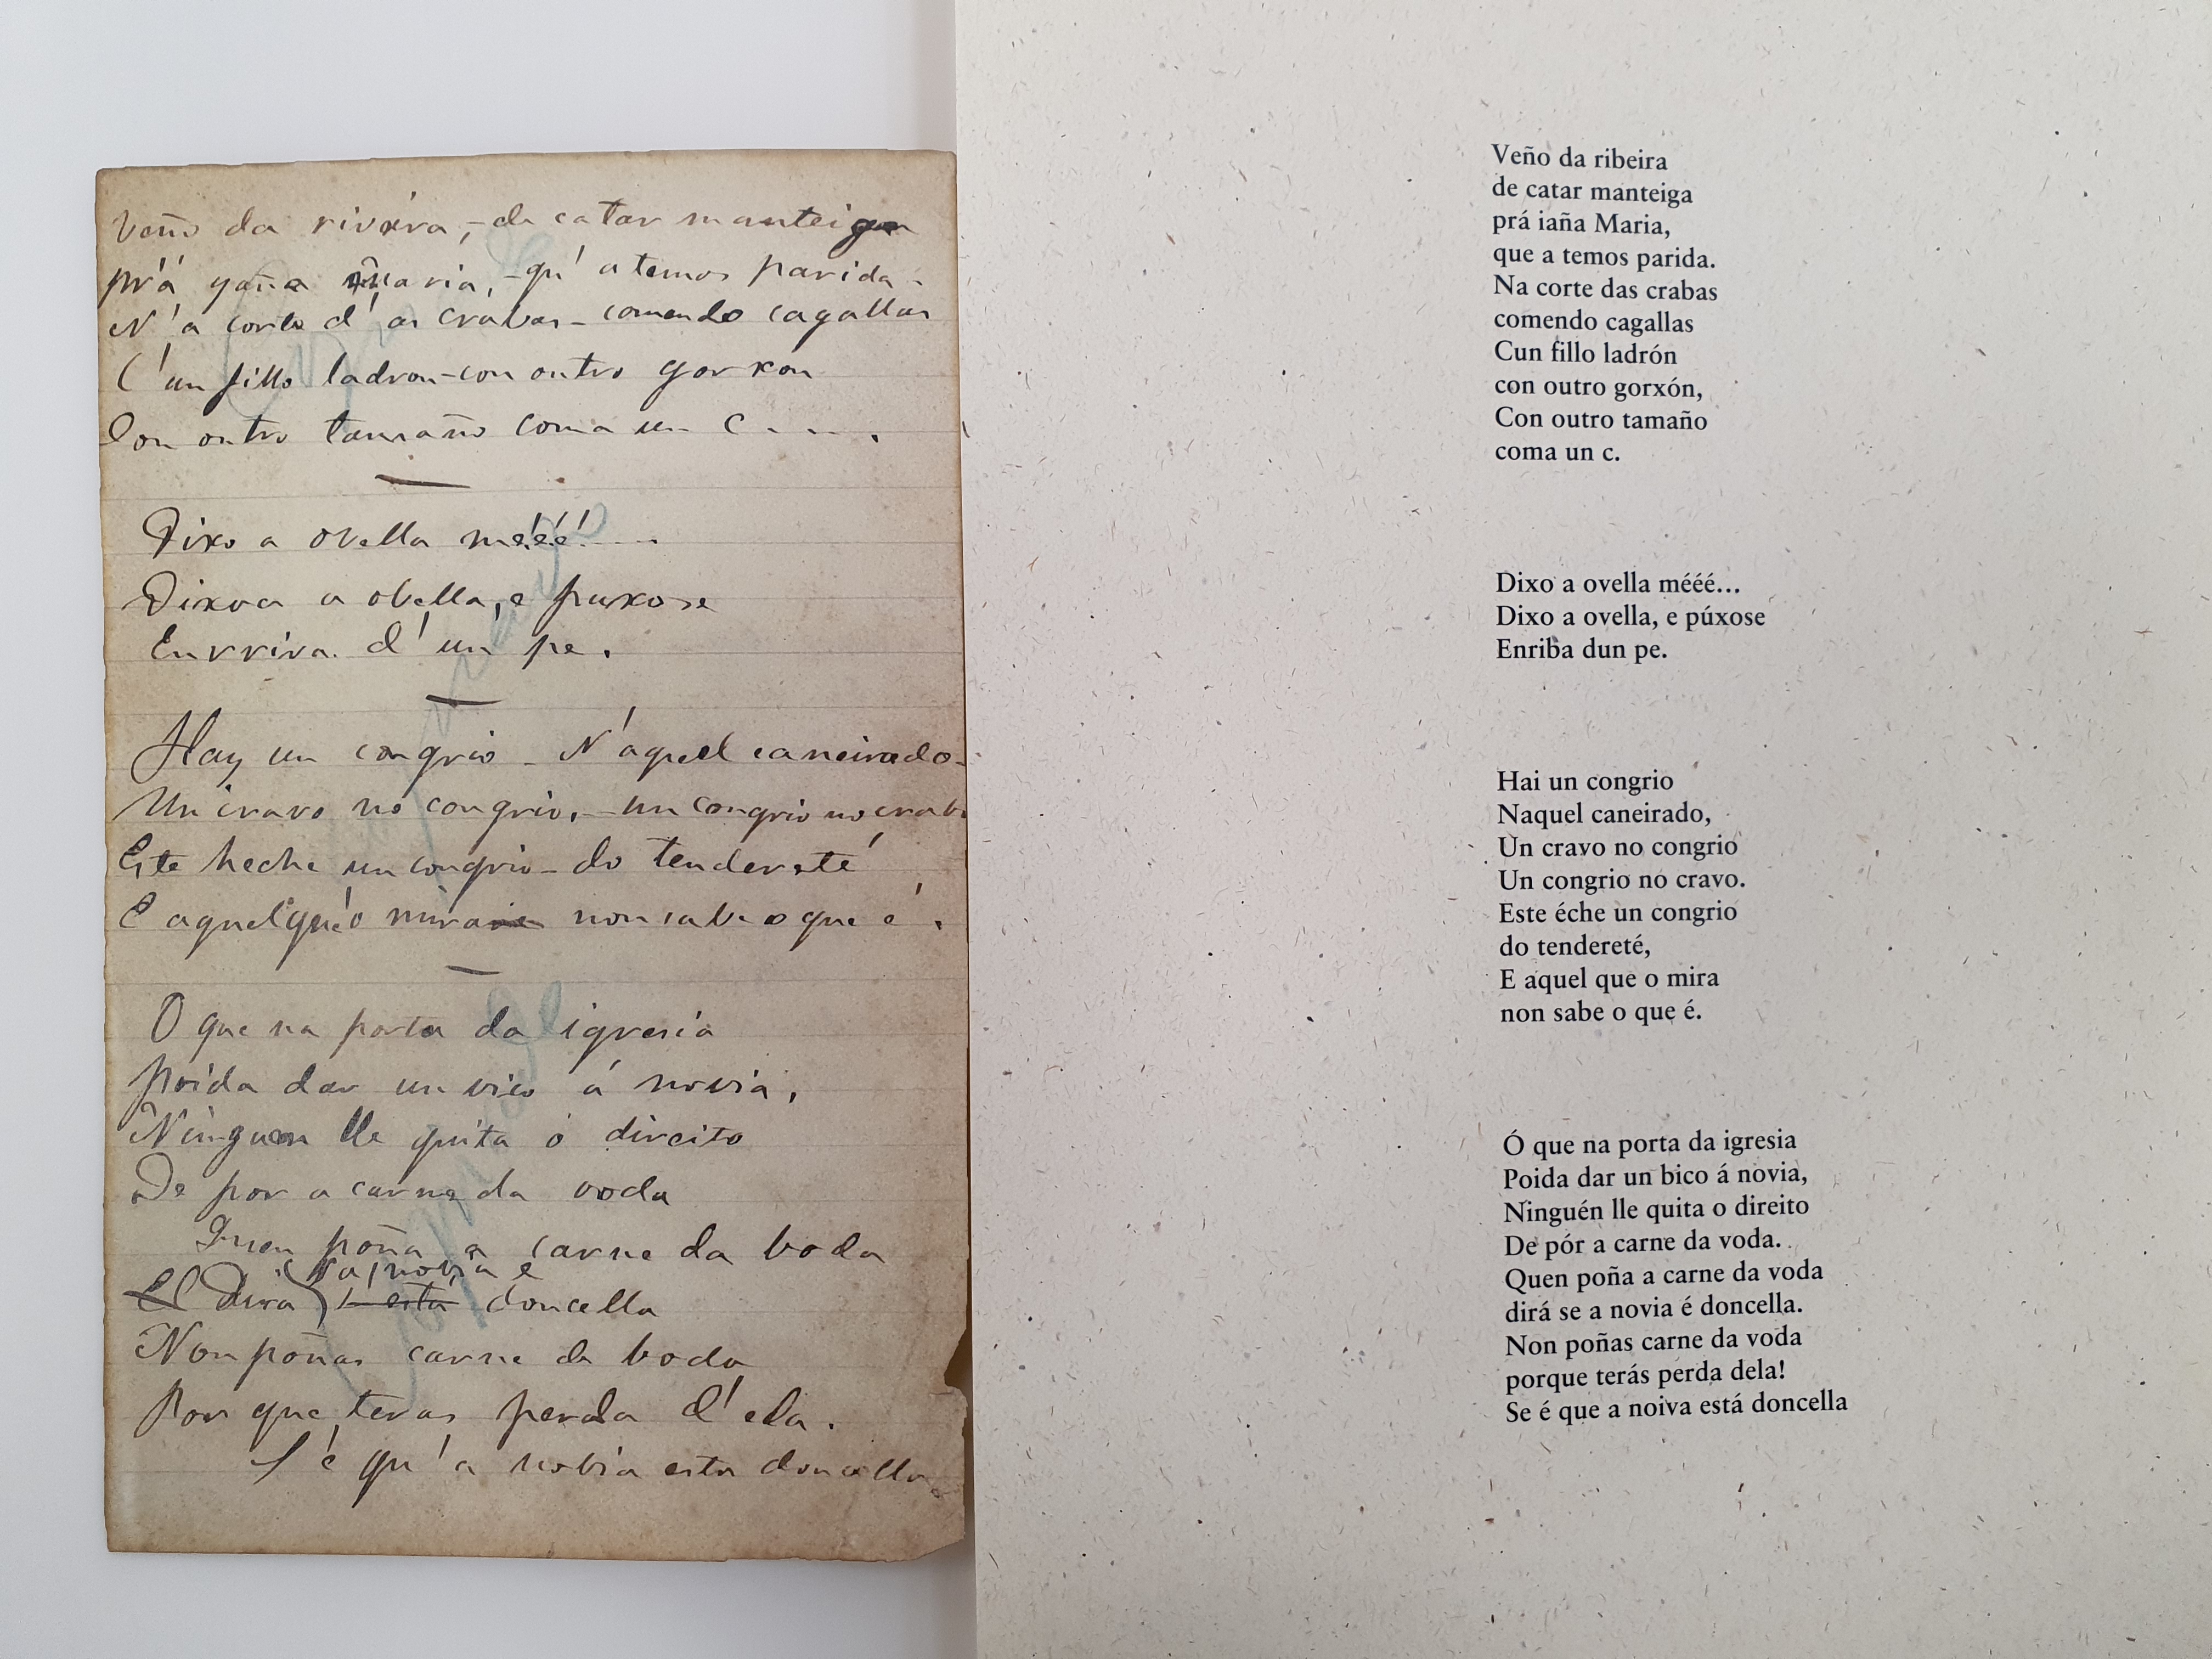 Veño da riveira, - de catar manteiga
prá yaña Maria, - qu' a temos parida -
N' a corte d' as crabas - comendo cagallas
C' un fillo ladron - con outro gorxon
Con outro tamaño coma un C . . . .
Dixo a ovella mééé! . . . .
Dixoa a obella, e puxose
Enrriva d' un pe.
Hay un congrio - N' aquel caneirado -
Un cravo no congrio, - un congrio no crabo
Este heche un congrio - do tendereté
E aquel que o mira non sabe o que é.
O que na porta da igresia
poida dar un vico á novia,
Ninguen lle quita ó direito
De por a carne da voda
Quen poña a carne da boda
s'a novia e
El Dira s' esta doncella
Non poñas carne da boda
Por que teras perda d' ela.
S' é qu' a nobia esta doncella
Veño da ribeira
de catar manteiga
prá iaña Maria,
que a temos parida.
Na corte das crabas
comendo cagallas
Cun fillo ladrón
con outro gorxón,
Con outro tamaño
coma un c.
Dixo a ovella mééé...
Dixo a ovella, e púxose
Enriba dun pe.
Hai un congrio
Naquel caneirado,
Un cravo no congrio
Un congrio no cravo.
Este éche un congrio
do tendereté,
E aquel que o mira
non sabe o que é.
Ó que na porta da igresia
Poida dar un bico á novia,
Ninguén lle quita o direito
De pór a carne da voda.
Quen poña a carne da voda
dirá se a novia é doncella.
Non poñas carne da voda
porque terás perda dela!
Se é que a noiva está doncella